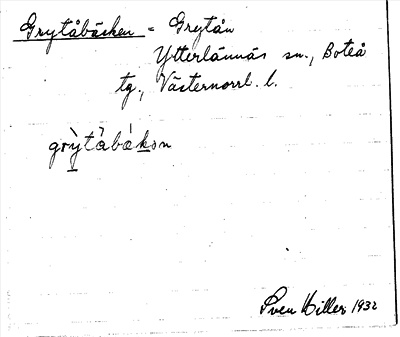 Grytåbäcken = Grytån
Ytterlännäs sn., Boteå
tg., Västernorrl. l.
grỳtåbákən
Sven Hiller 1932